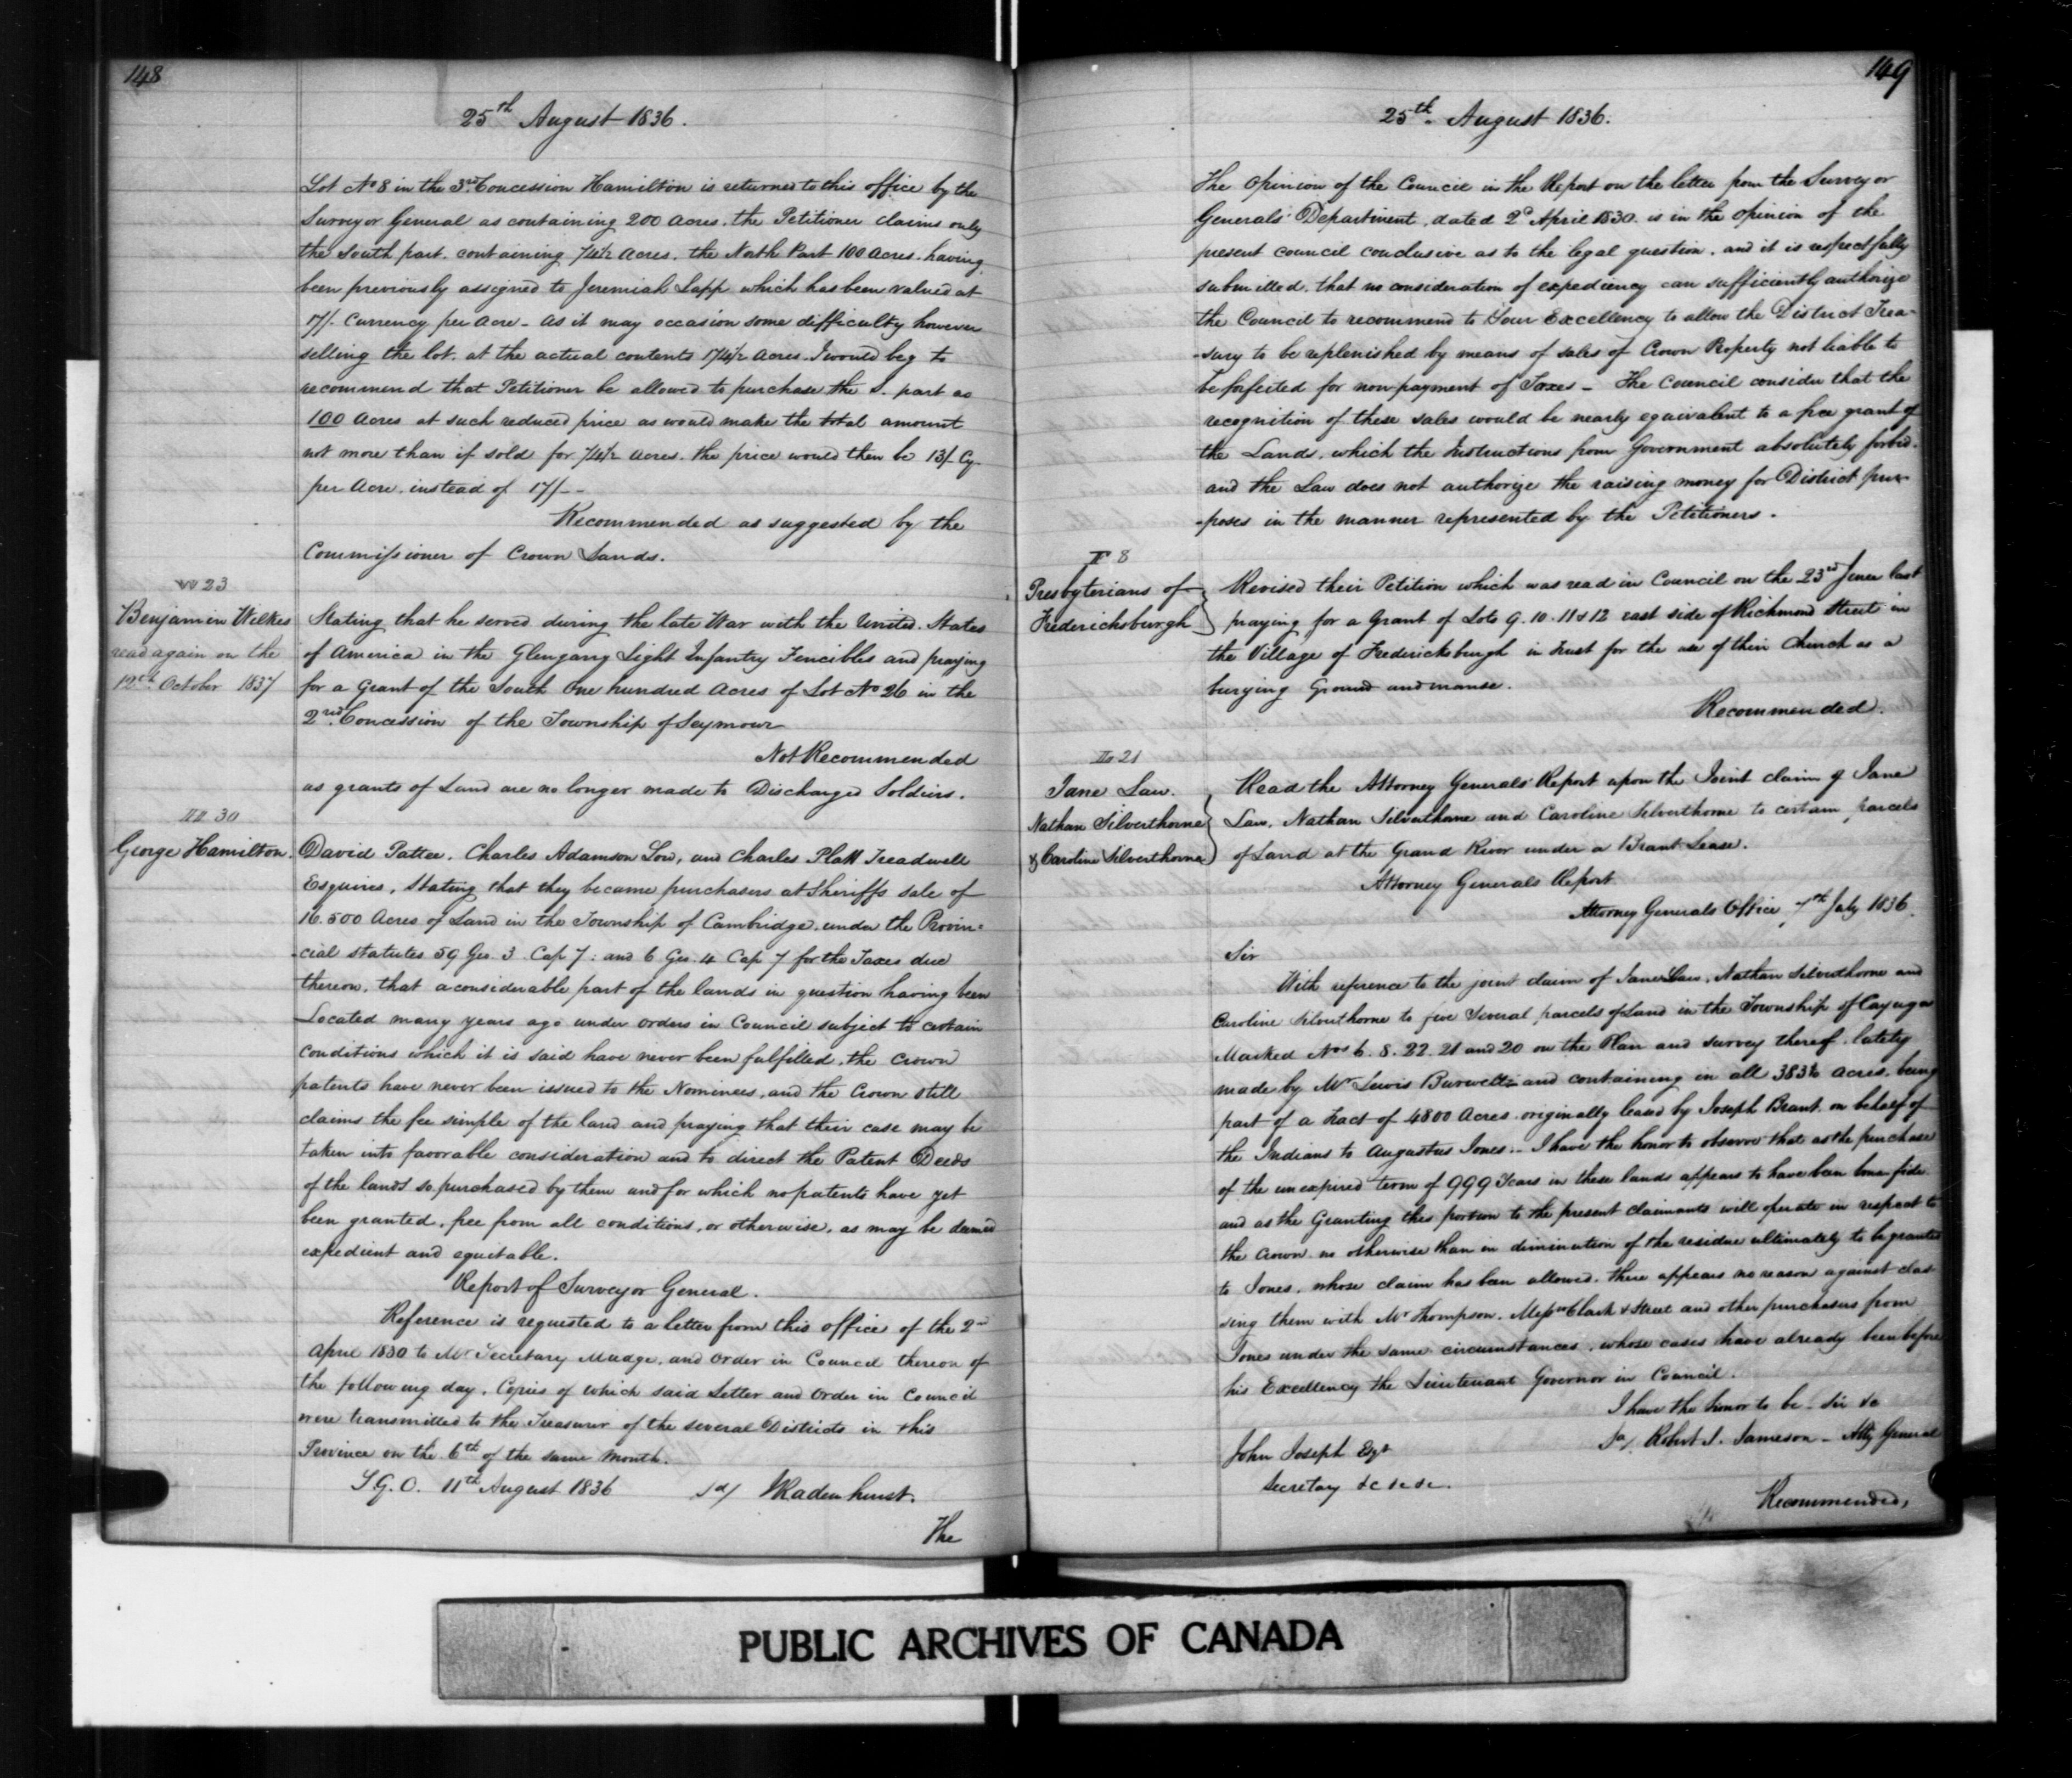 148
25th August 1836.
Lot No 8 in the 3rd Concession Hamilton is returned to this office by the
Surveyor General as containing 200 acres. the Petitioner claims only
the South part. containing 74½ Acres. the North Part 100 Acres. having
been previously assigned to Jeremiah Lapp which has been valued at
17/- Currency per Acre - As it may occasion some difficulty however
selling the lot at the actual contents 174½ Acres. I would beg to
recommend that Petitioner be allowed to purchase the S. part as
100 Acres at such reduced price as would make the total amount
not more than if sold for 74½ Acres. the price would then be 13/- Cy.
per Acre. instead of 17/- -
Recommended as suggested by the
Commissioner of Crown Lands.
W 23
Benjamin Wilkes
read again on the
12th October 1837
Stating that he served during the late War with the United States
of America in the Glengarry Light Infantry Fencibles and praying
for a Grant of the South One hundred Acres of Lot No 26 in the
2nd Concession of the Township of Seymour
Not Recommended
as grants of Land are no longer made to Discharged Soldiers.
30
George Hamilton.
David Pattee, Charles Adamson Low, and Charles Platt Treadwell
Esquires, Stating that they became purchasers at Sheriffs sale of
16.500 Acres of Land in the Township of Cambridge. under the Provin-
-cial statutes 59 Geo. 3 Cap 7: and 6 Geo. 4 Cap 7 for the Taxes due
thereon, that a considerable part of the lands in question having been
Located many years ago under orders in Council subject to certain
conditions which it is said have never been fulfilled, the Crown
patents have never been issued to the Nominees, and the Crown still
claims the fee simple of the land and praying that their case may be
taken into favorable consideration and to direct the Patent Deeds
of the lands so purchased by them and for which no patents have yet
been granted, free from all conditions, or otherwise, as may be deemed
expedient and equitable.
Report of Surveyor General.
Reference is requested to a letter from this office of the 2nd
April 1830 to Mr Secretary Mudge, and Order in Council thereon of
the following day, Copies of which said Letter and Order in Council
were transmitted to the Treasurer of the several Districts in this
Province on the 6th of the same Month.
S.G.O. 11th August 1836 sd/ JRadenhurst.
The
149
25th. August 1836.
The Opinion of the Council in the Report on the letter from the Surveyor
Generals' Department, dated 2d April 1830. is in the opinion of the
present council conclusive as to the legal question. and it is respectfully
submitted, that no consideration of expediency can sufficiently authorize
the Council to recommend to Your Excellency to allow the District Trea-
-sury to be replenished by means of sales of Crown Property not liable to
be forfeited for non payment of Taxes - The Council consider that the
recognition of these sales would be nearly equivalent to a free grant of
the Lands, which the Instructions from Government absolutely forbid.
and the Law does not authorize the raising money for District pur-
-poses in the manner represented by the Petitioners.
F 8
Presbyterians of
Fredericksburgh
Revised their Petition which was read in Council on the 23rd June last
praying for a Grant of Lots 9. 10. 11 & 12 east side of Richmond Street in
the Village of Fredericksburgh in trust for the use of their Church as a
burying Ground and manse.
Recommended.
21
Jane Law.
Nathan Silverthorne
& Caroline Silverthorne
Read the Attorney Generals' Report upon the Joint claim of Jane
Law, Nathan Silverthorne and Caroline Silverthorne to certain parcels
of Land at the Grand River under a Brant Lease.
Attorney Generals Report
Attorney Generals Office 7th July 1836.
Sir
With reference to the joint claim of Jane Law, Nathan Silverthorne and
Caroline Silverthorne to five Several parcels of Land in the Township of Cayuga
Marked Nos 6. 8. 22. 21 and 20 on the Plan and survey thereof lately
made by Mr Lewis Burwell and containing in all acres, being
part of a tract of 4800 Acres originally leased by Joseph Brant on behalf of
the Indians to Augustus Jones. - I have the honor to observe that as the purchase
of the unexpired term of 999 Years in these lands appears to have been bona fide
and as the Granting this portion to the present claimants will operate in respect to
the Crown no otherwise than in diminution of the residue ultimately to be granted
to Jones, whose claim has been allowed. there appears no reason against clas-
sing them with Mr Thompson. Messrs Clark & Street and other purchasers from
Jones under the same circumstances, whose cases have already been before
his Excellency the Lieutenant Governor in Council.
I have the honor to be - Sir &c
Robert S. Jameson - Atty General
John Joseph Esqr
Secretary &c &c &c.
Recommended,
PUBLIC ARCHIVES OF CANADA